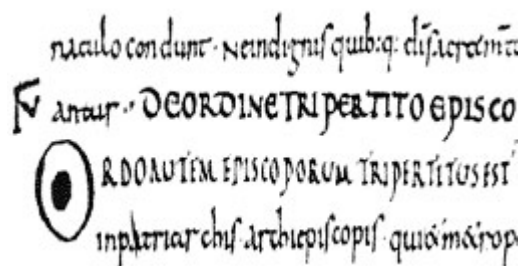 naculo condunt · Neindignis quib:q: diuisacrem̄t
antur ·· DE ORDINE TRIPERTITO EPISCO
ORDO AUTEM EPISCOPORUM TRIPERTITUS EST
in patriarchis · archiepiscopis · qui &